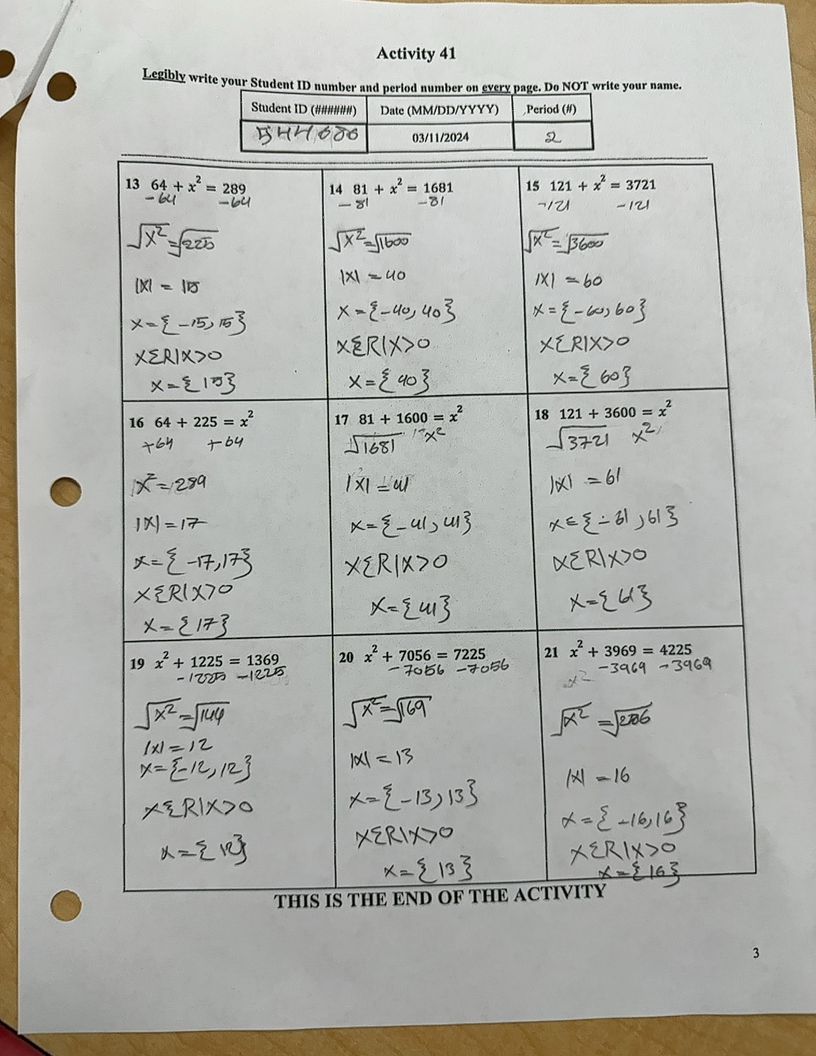 Activity 41
Legibly write your Student ID number and period number on every page. Do NOT write your name.
Student ID (######) Date (MM/DD/YYYY) Period (#)
03/11/2024 2
13 64 + x² = 289
-64 -64
√x² = √225
|x| = 15
x = {-15, 15}
xΣR|x>0
x = {15}
14 81 + x² = 1681
-81 -81
√x² = √1600
|x| = 40
x = {-40, 40}
xΣR|x>0
x = {40}
15 121 + x² = 3721
-121 -121
√x² = √3600
|x| = 60
x = {-60, 60}
xΣR|x>0
x = {60}
16 64 + 225 = x²
+64 +64
x² = 289
|x| = 17
x = {-17, 17}
xΣR|x>0
x = {17}
17 81 + 1600 = x²
√1681 x²
|x| = 41
x = {-41, 41}
xΣR|x>0
x = {41}
18 121 + 3600 = x²
√3721 x²
|x| = 61
x = {-61, 61}
xΣR|x>0
x = {61}
19 x² + 1225 = 1369
-1225 -1225
√x² = √144
|x| = 12
x = {-12, 12}
xΣR|x>0
x = {12}
20 x² + 7056 = 7225
-7056 -7056
√x² = √169
|x| = 13
x = {-13, 13}
xΣR|x>0
x = {13}
21 x² + 3969 = 4225
x² -3969 -3969
√x² =
|x| = 16
x = {-16, 16}
xΣR|x>0
x = {16}
THIS IS THE END OF THE ACTIVITY
3